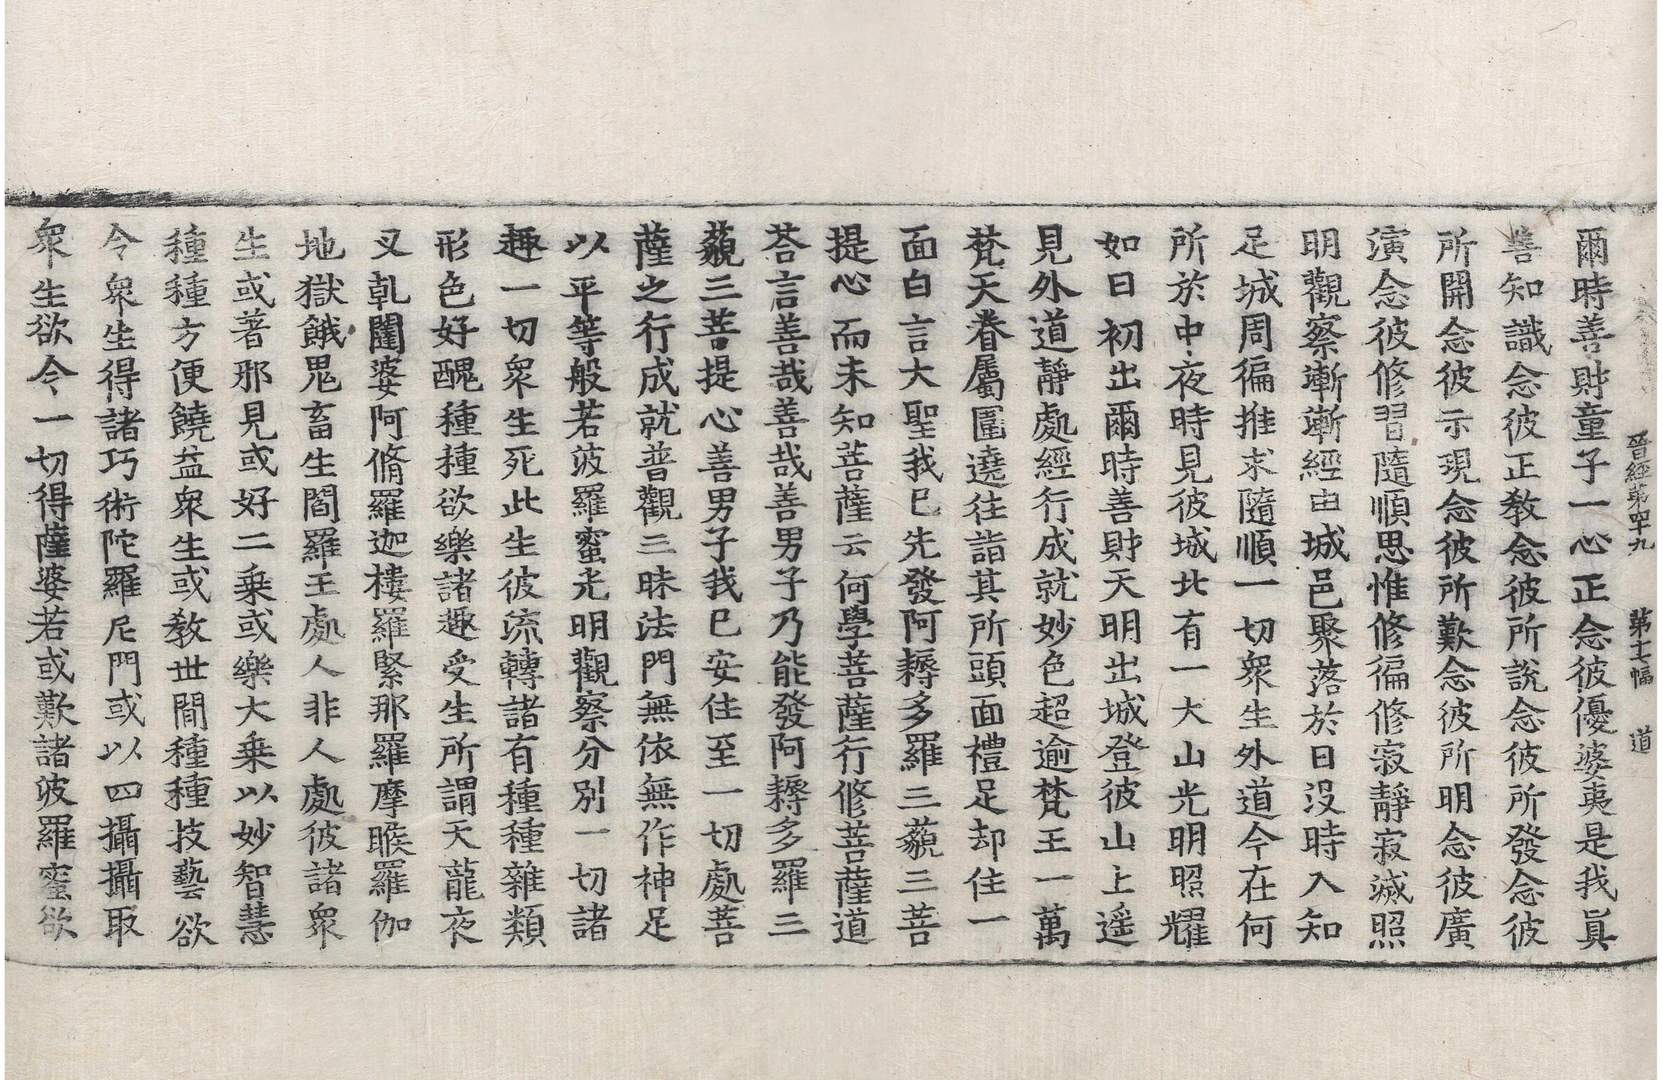 晉經第四十九　第十七幅　道
爾時善財童子一心正念彼優婆夷是我眞
善知識念彼正敎念彼所說念彼所發念彼
所開念彼示現念彼所歎念彼所明念彼廣
演念彼修習隨順思惟修徧修寂靜寂滅照
明觀察漸漸經由城邑聚落於日沒時入知
足城周徧推求隨順一切衆生外道今在何
所於中夜時見彼城北有一大山光明照耀
如日初出爾時善財天明出城登彼山上遥
見外道靜處經行成就妙色超逾梵王一萬
梵天眷屬圍遶往詣其所頭面禮足却住一
面白言大聖我已先發阿耨多羅三藐三菩
提心而未知菩薩云何學菩薩行修菩薩道
荅言善哉善哉善男子乃能發阿耨多羅三
藐三菩提心善男子我已安住至一切處菩
薩之行成就普觀三昧法門無依無作神足
以平等般若波羅蜜光明觀察分別一切諸
趣一切衆生死此生彼流轉諸有種種雜類
形色好醜種種欲樂諸趣受生所謂天龍夜
叉乹闥婆阿脩羅迦樓羅緊那羅摩睺羅伽
地獄餓鬼畜生閻羅王處人非人處彼諸衆
生或著邪見或好二乘或樂大乘以妙智慧
種種方便饒益衆生或敎世間種種技藝欲
令衆生得諸巧術陀羅尼門或以四攝攝取
衆生欲令一切得薩婆若或歎諸波羅蜜欲